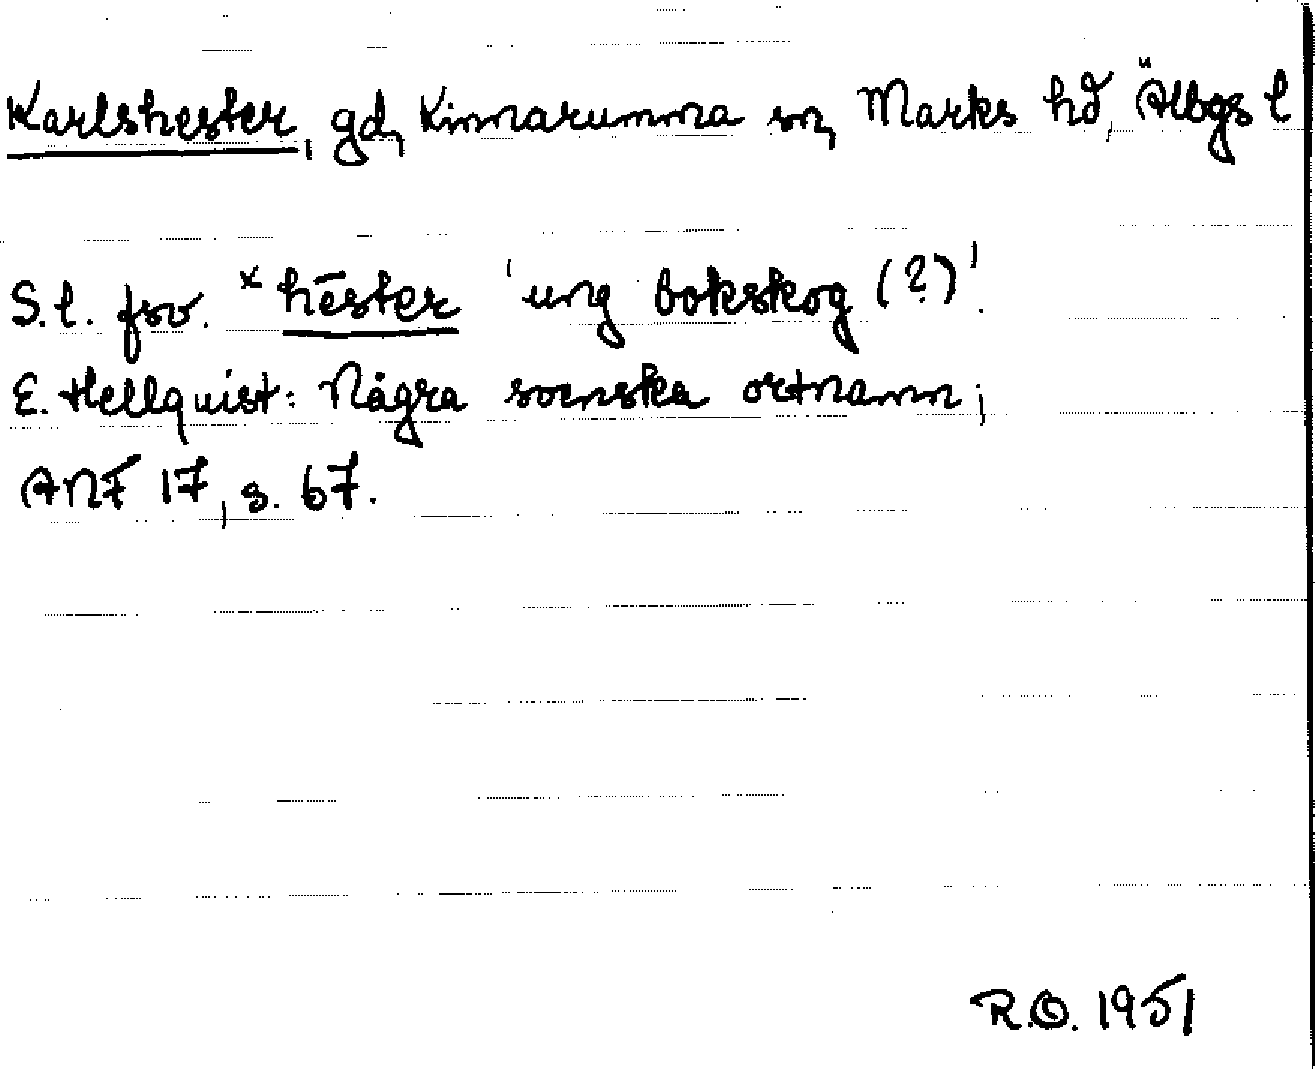 Karlshester, gd, Kinnarumma sn, Marks hd, Älbgs l
S.l. fsv. *hēster 'ung bokskog (?)'.
E. Hellquist: Några svenska ortnamn;
ANF 17, s. 67.
R.O. 1951